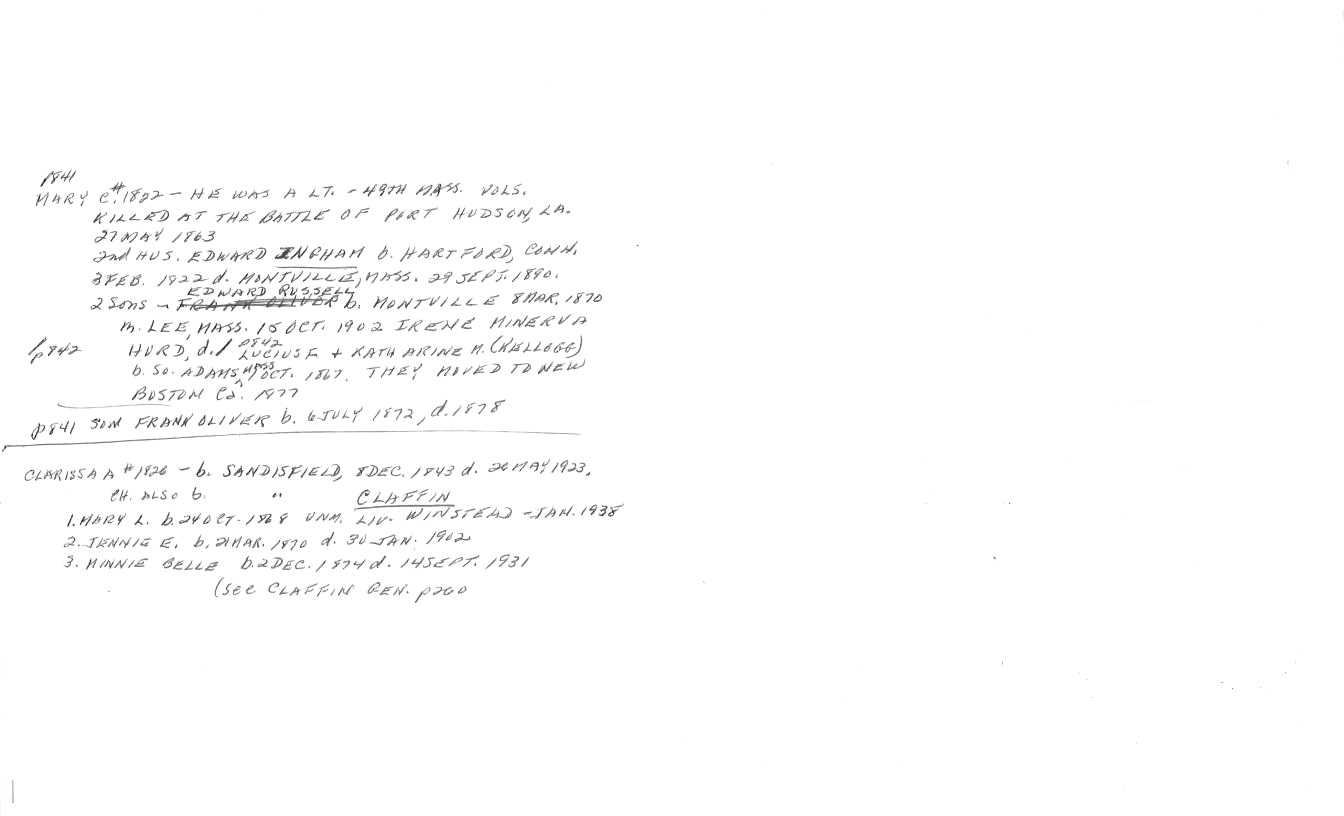 p841
MARY C. #1822 – HE WAS A LT. – 49TH MASS. VOLS.
KILLED AT THE BATTLE OF PORT HUDSON, LA.
27 MAY 1863
2nd HUS. EDWARD INGHAM b. HARTFORD, CONN.
3 FEB. 1822 d. MONTVILLE, MASS. 29 SEPT. 1890.
EDWARD RUSSELL
2 SONS – FRANK OLIVER b. MONTVILLE 8 MAR. 1870
m. LEE, MASS. 15 OCT. 1902 IRENE MINERVA
p842 HURD, d./ p842 LUCIUS F. + KATHARINE M. (KELLOGG)
b. SO. ADAMS, MASS OCT. 1867. THEY MOVED TO NEW
BOSTON Ca. 1877
p841 SON FRANK OLIVER b. 6 JULY 1872, d. 1878
CLARISSA A #1826 – b. SANDISFIELD, 8 DEC. 1843 d. 26 MAY 1923.
CH. ALSO b. " CLAFFIN
1. MARY L. b. 24 OCT. 1868 UNM. LIV. WINSTEAD – JAN. 1938
2. JENNIE E. b. 21 MAR. 1870 d. 30 JAN. 1902
3. MINNIE BELLE b. 2 DEC. 1874 d. 14 SEPT. 1931
(SEE CLAFFIN GEN. p260